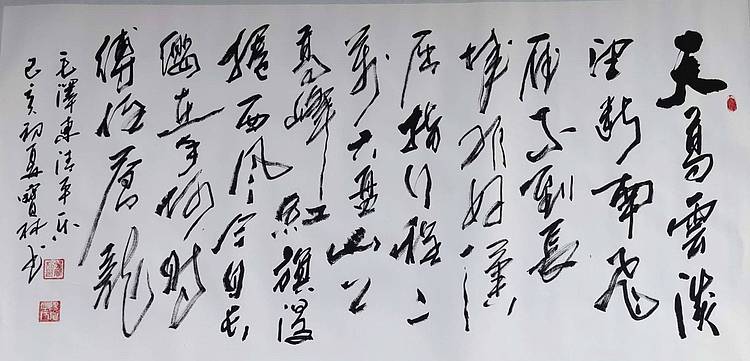 天高雲淡
望斷南飛
雁不到長
城非好漢
屈指行程二
萬六盤山上
高峰紅旗漫
捲西風今日长
纓在手何時
縛住蒼龍
毛澤東清平乐
己亥初夏寶林书